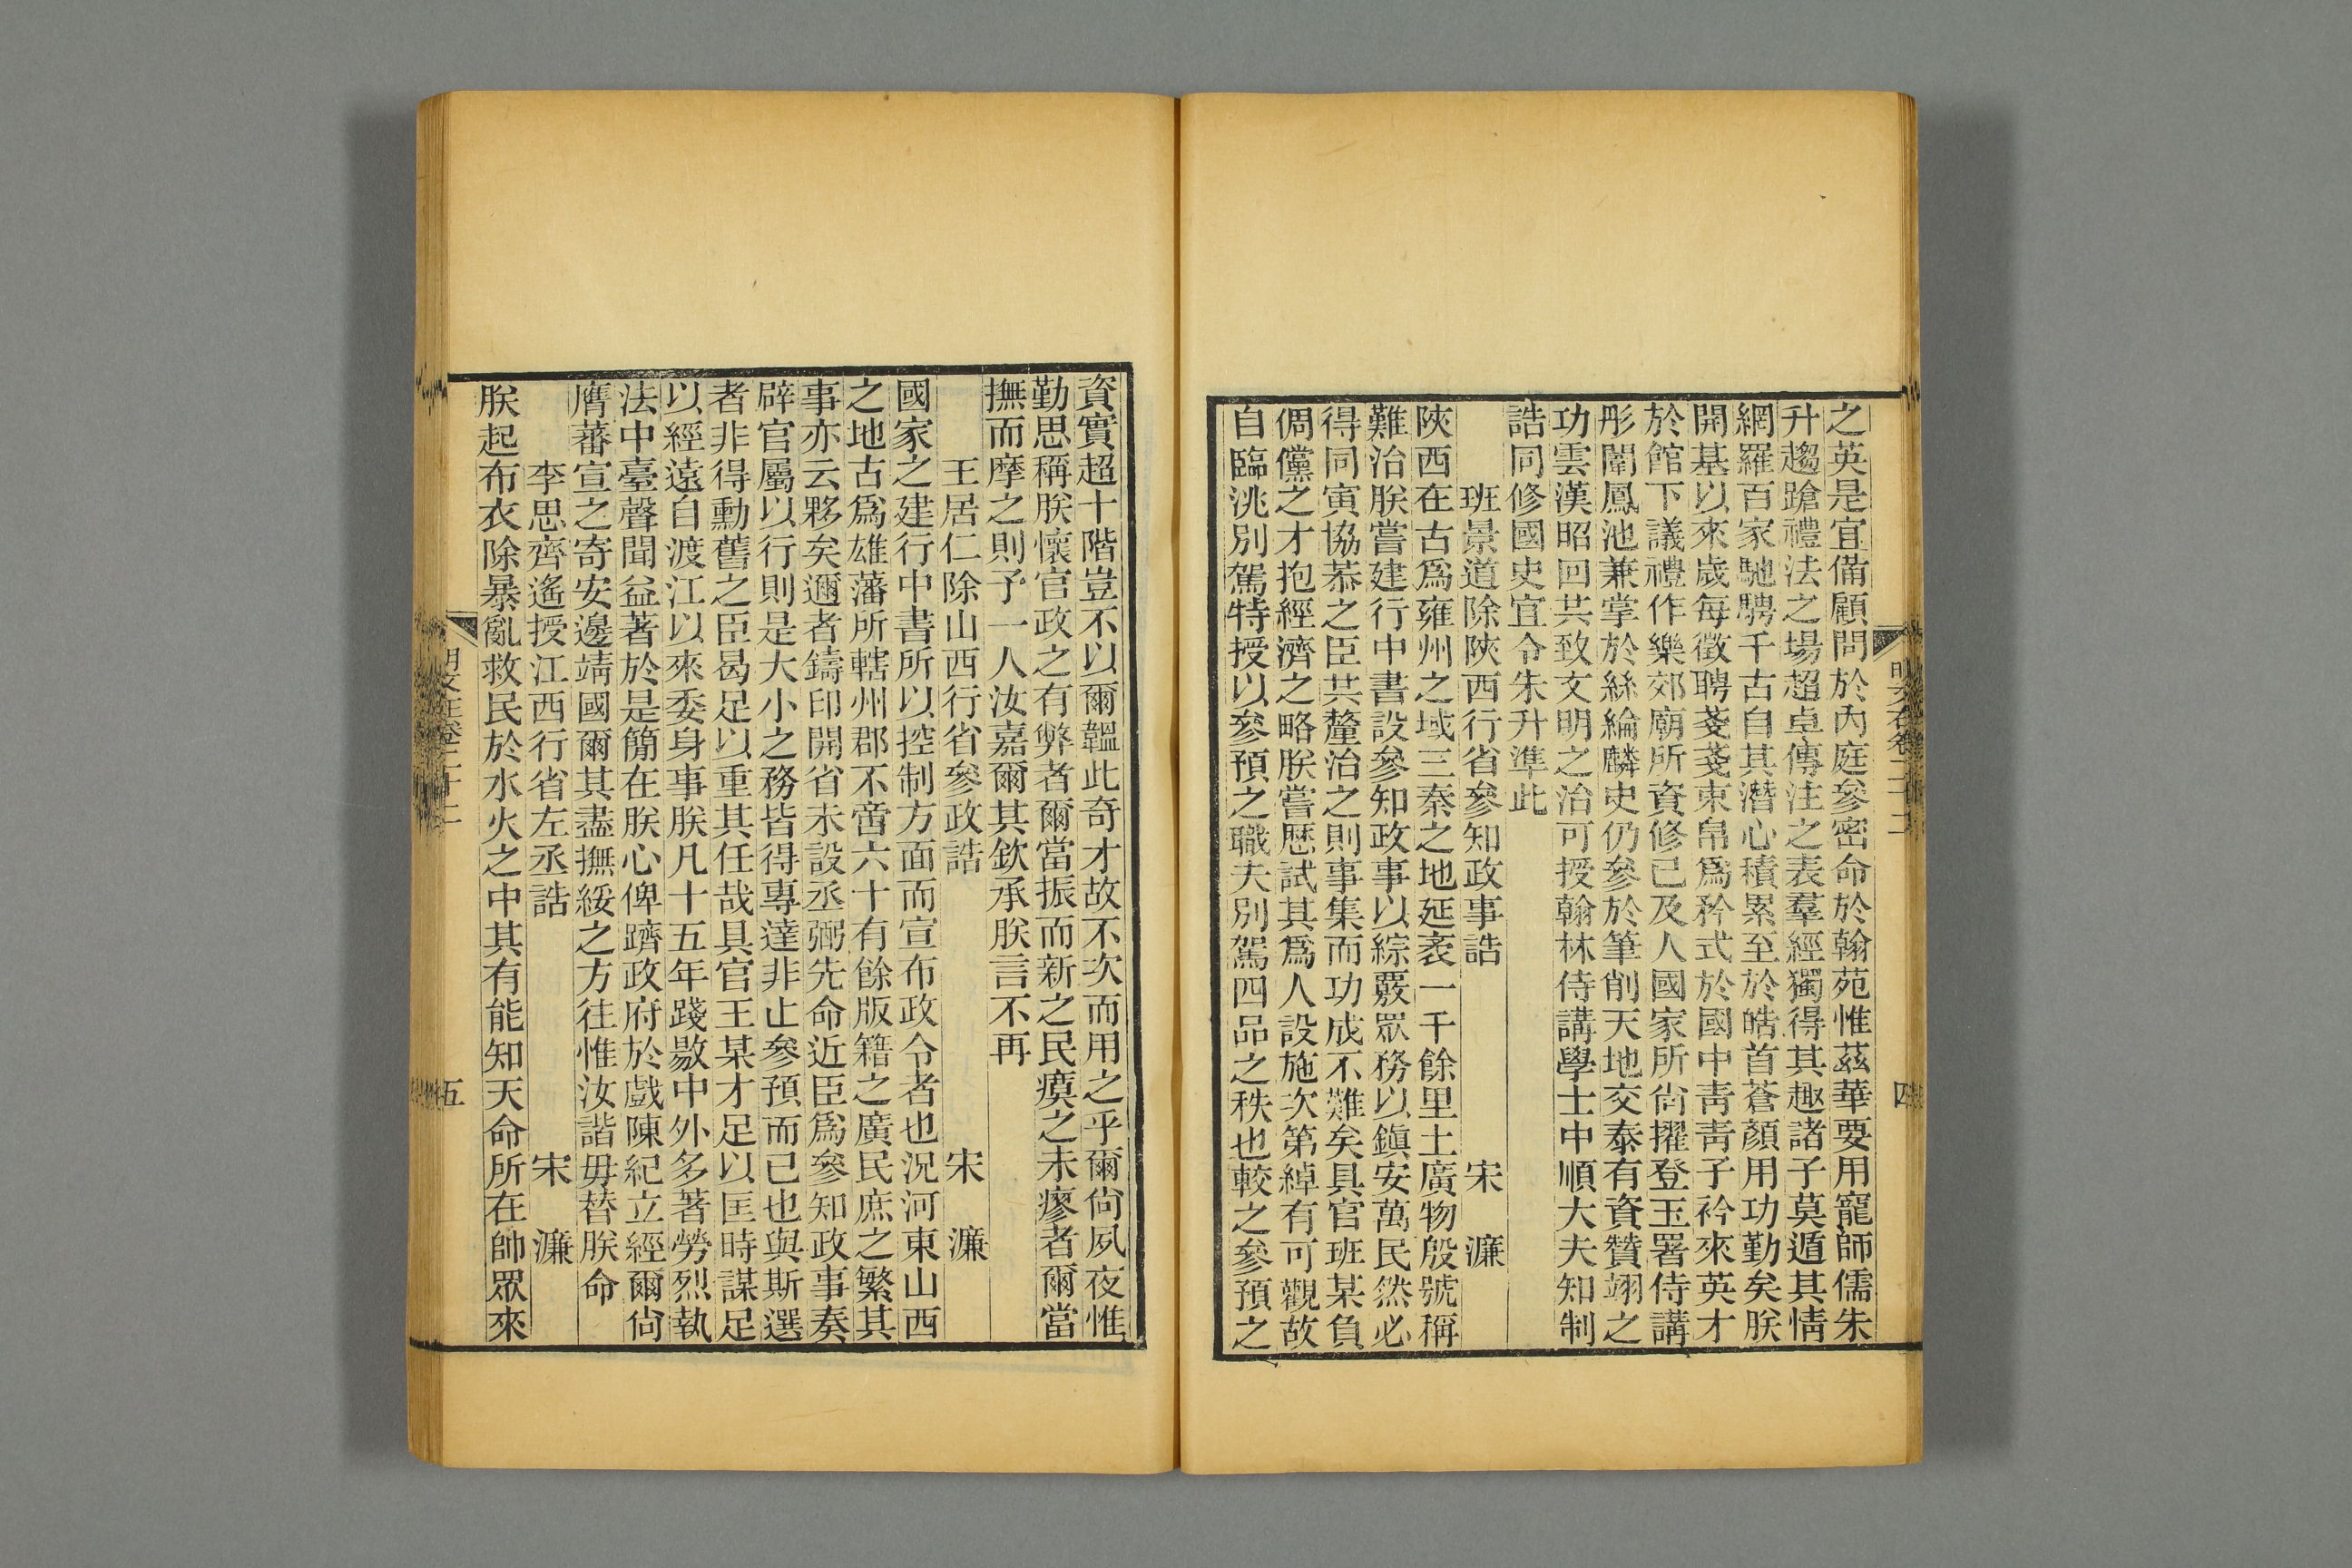 之英是宜備顧問於內庭參密命於翰苑惟茲華要用寵師儒朱
升趨蹌禮法之場超卓傳注之表羣經獨得其趣諸子莫遁其情
網羅百家馳騁千古自其潛心積累至於皓首蒼顏用功勤矣朕
開基以來歲每徵聘戔戔束帛爲矜式於國中青青子衿來英才
於館下議禮作樂郊廟所資修已及人國家所尙擢登玉署侍講
彤闈鳳池兼掌於絲綸麟史仍參於筆削天地交泰有資贊翊之
功雲漢昭回共致文明之治可授翰林侍講學士中順大夫知制
誥同修國史宜令朱升準此
班景道除陝西行省參知政事誥 宋濂
陝西在古爲雍州之域三秦之地延袤一千餘里土廣物殷號稱
難治朕嘗建行中書設參知政事以綜覈眾務以鎭安萬民然必
得同寅協恭之臣共釐治之則事集而功成不難矣具官班某負
倜儻之才抱經濟之略朕嘗歷試其爲人設施次第綽有可觀故
自臨洮別駕特授以參預之職夫別駕四品之秩也較之參預之
明文在卷二十二
四
資實超十階豈不以爾韞此奇才故不次而用之乎爾尙夙夜惟
勤思稱朕懷官政之有弊者爾當振而新之民瘼之未瘳者爾當
撫而摩之則予一人汝嘉爾其欽承朕言不再
王居仁除山西行省參政誥 宋濂
國家之建行中書所以控制方面而宣布政令者也況河東山西
之地古爲雄藩所轄州郡不啻六十有餘版籍之廣民庶之繁其
事亦云夥矣邇者鑄印開省未設丞弼先命近臣爲參知政事奏
辟官屬以行則是大小之務皆得專達非止參預而已也與斯選
者非得勳舊之臣曷足以重其任哉具官王某才足以匡時謀足
以經遠自渡江以來委身事朕凡十五年踐敭中外多著勞烈執
法中臺聲聞益著於是簡在朕心俾躋政府於戲陳紀立經爾尙
膺蕃宣之寄安邊靖國爾其盡撫綏之方往惟汝諧毋替朕命
李思齊遙授江西行省左丞誥 宋濂
朕起布衣除暴亂救民於水火之中其有能知天命所在帥眾來
明文在卷二十二
五